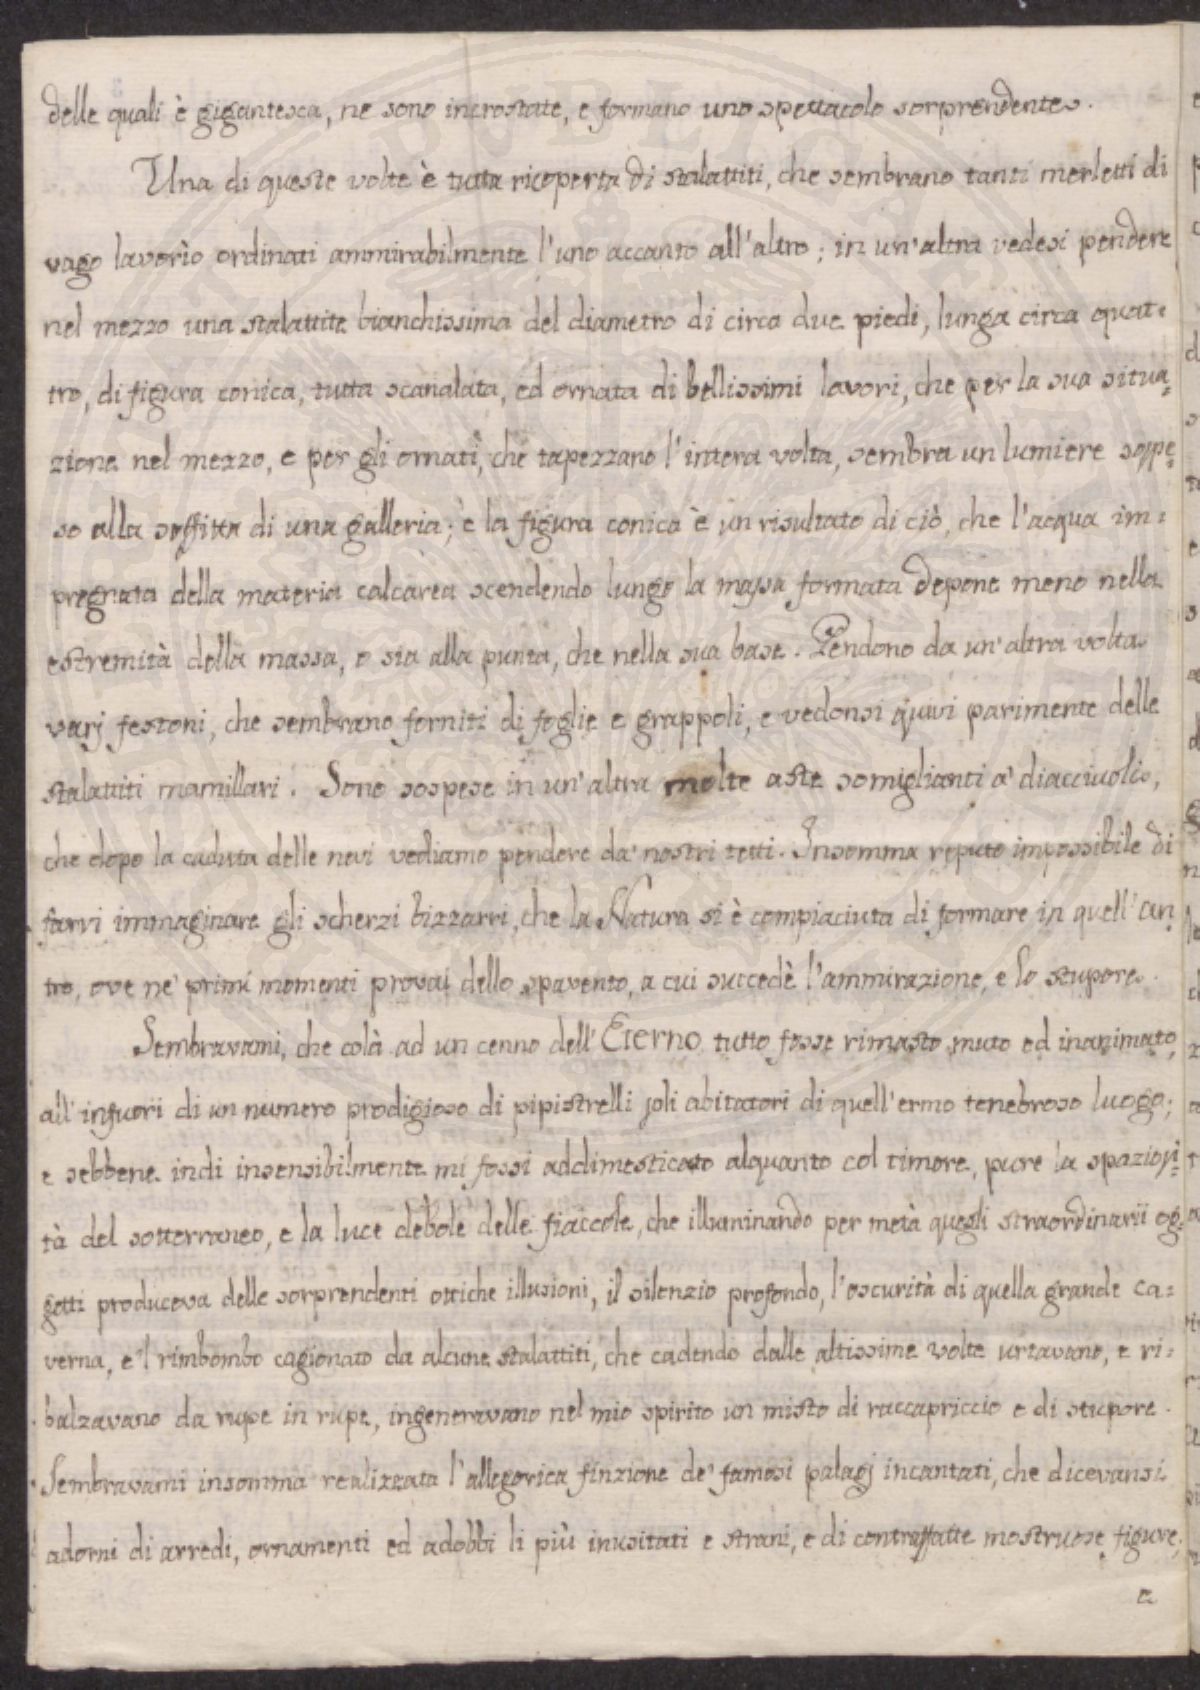 delle quali è gigantesca, ne sono incrostate, e formano uno spettacolo sorprendente.
Una di queste volte è tutta ricoperta di stalattiti, che sembrano tanti merletti di
vago lavorìo ordinati ammirabilmente l'uno accanto all'altro; in un'altra vedesi pendere
nel mezzo una stalattite bianchissima del diametro di circa due piedi, lunga circa quat=
tro, di figura conica, tutta scanalata, ed ornata di bellissimi lavori, che per la sua situa=
zione nel mezzo, e per gli ornati, che tapezzano l'intera volta, sembra un lumiere sospe=
so alla soffitta di una galleria; e la figura conica è un risultato di ciò, che l'acqua im=
pregnata della materia calcarea scendendo lungo la massa formata depone meno nella
estremità della massa, o sia alla punta, che nella sua base. Pendono da un'altra volta
varj festoni, che sembrano forniti di foglie e grappoli, e vedonsi quivi parimente delle
stalattiti mamillari. Sono sospese in un'altra molte aste somiglianti a' diacciuoli,
che dopo la caduta delle nevi vediamo pendere da' nostri tetti. Insomma reputo impossibile di
farvi immaginare gli scherzi bizzarri, che la Natura si è compiaciuta di formare in quell'an
tro, ove ne' primi momenti provai dello spavento, a cui succedè l'ammirazione, e lo stupore.
Sembravami, che colà ad un cenno dell'Eterno tutto fosse rimasto muto ed inanimato,
all'infuori di un numero prodigioso di pipistrelli soli abitatori di quell'ermo tenebroso luogo;
e sebbene indi insensibilmente mi fossi addimesticato alquanto col timore, pure la spaziosi=
tà del sotterraneo, e la luce debole delle fiaccole, che illuminando per metà quegli straordinarii og
getti produceva delle sorprendenti ottiche illusioni, il silenzio profondo, l'oscurità di quella grande ca=
verna, e'l rimbombo cagionato da alcune stalattiti, che cadendo dalle altissime volte urtavano, e ri=
balzavano da rupe in rupe, ingeneravano nel mio spirito un misto di raccapriccio e di stupore.
Sembravami insomma realizzata l'allegorica finzione de' famosi palagj incantati, che dicevansi
adorni di arredi, ornamenti ed adobbi li più inusitati e strani, e di contraffatte mostruose figure;
e